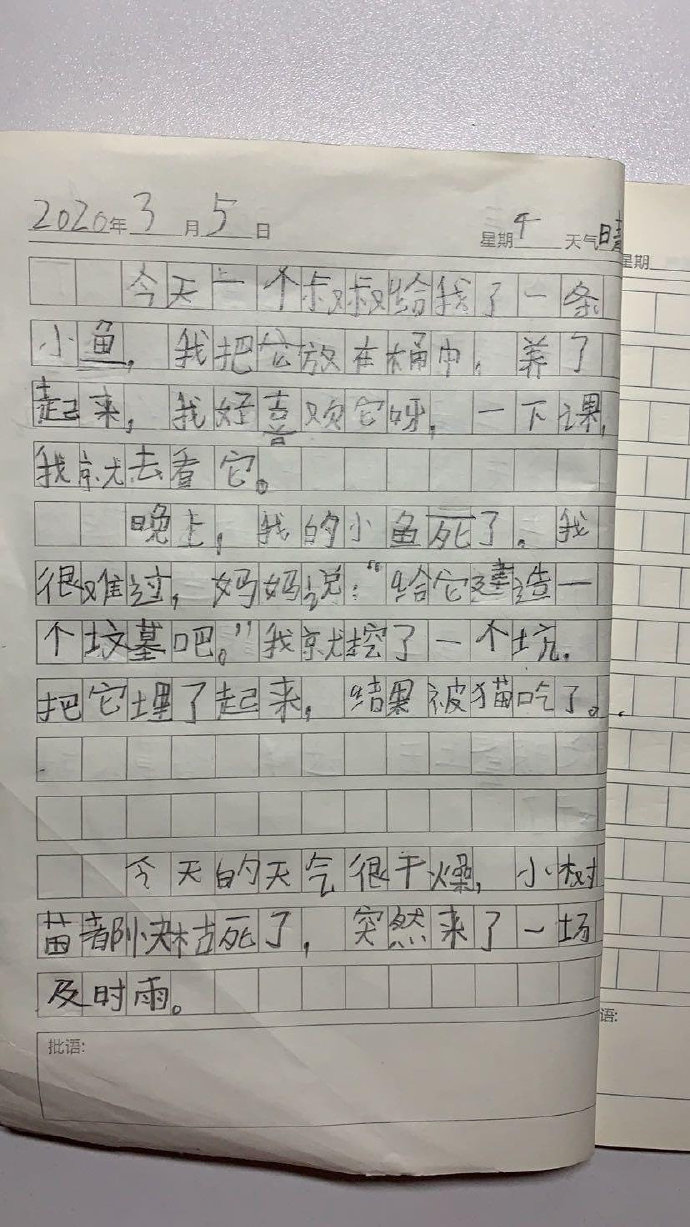 2020年3月5日 星期4 天气晴
星期
今天一个叔叔给我了一条
小鱼，我把它放在桶中，养了
起来，我好喜欢它呀，一下课，
我就去看它。
晚上，我的小鱼死了，我
很难过，妈妈说：“给它建造一
个坟墓吧。”我就挖了一个坑，
把它埋了起来，结果被猫吃了。
今天的天气很干燥，小树
苗都快枯死了，突然来了一场
及时雨。
批语:
语: